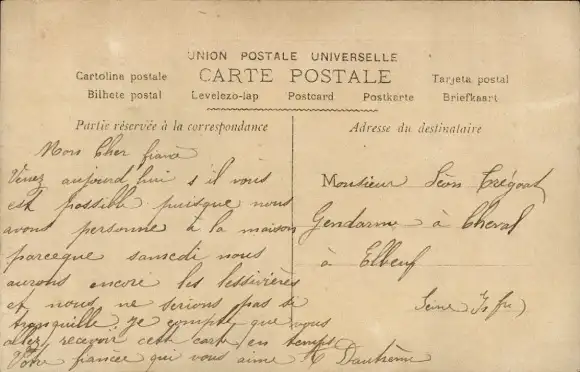 UNION POSTALE UNIVERSELLE
CARTE POSTALE
Cartolina postale
Tarjeta postal
Bilhete postal
Levelezo-lap
Postcard
Postkarte
Briefkaart
Partie réservée à la correspondance
Adresse du destinataire
Mon Cher fiancé
Venez aujourd'hui s'il vous
est possible puisque nous
avons personne à la maison
parceque samedi nous
aurons encore les lessivières
et nous ne serions pas si
tranquille je compte que vous
allez recevoir cette carte en temps
Votre fiancée qui vous aime
Monsieur Léon Trégoat
Gendarme à Cheval
à Elbeuf
Seine